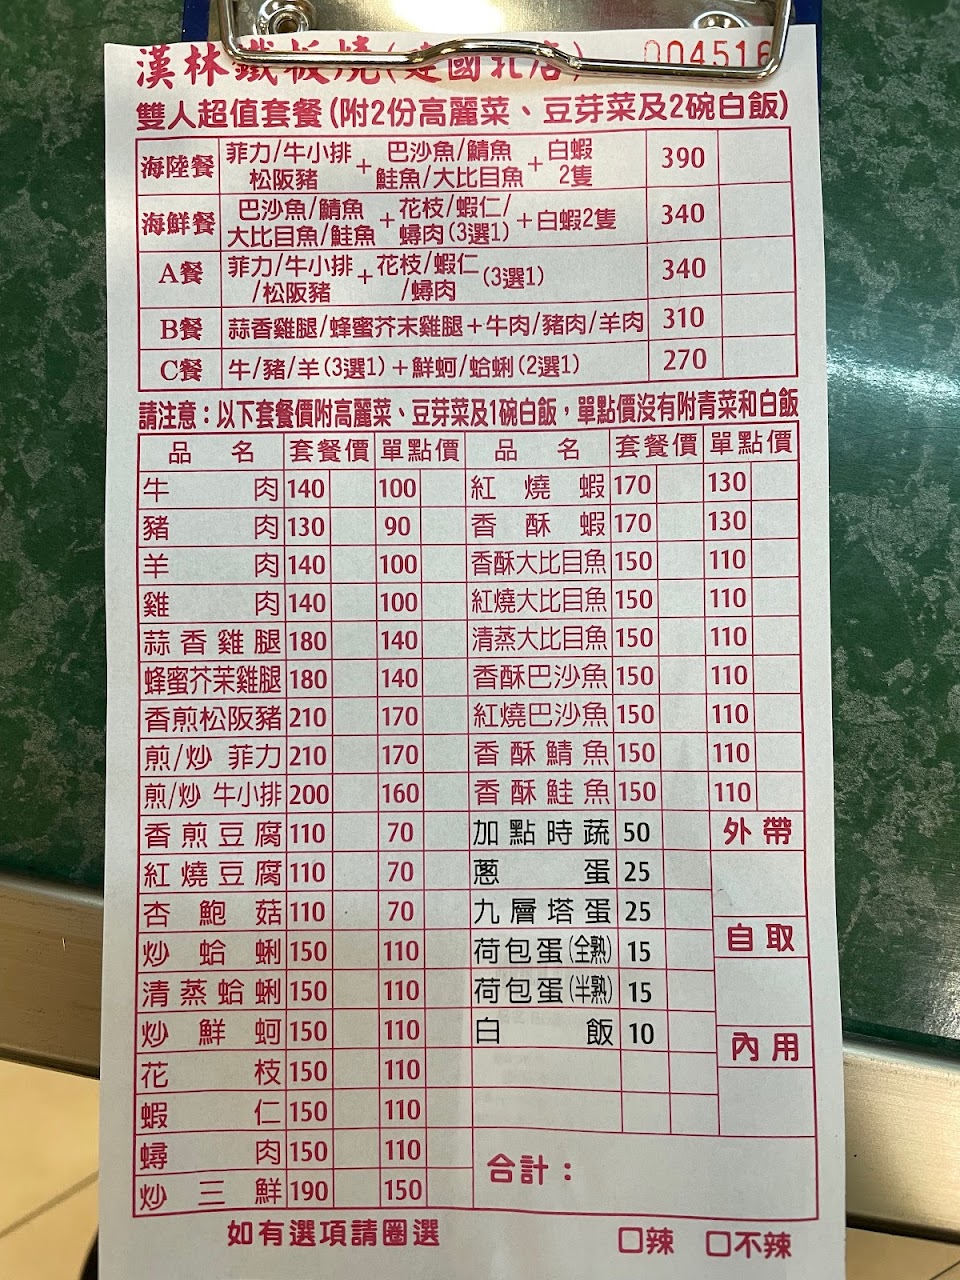 漢林鐵板燒(建國北店) 004516
雙人超值套餐(附2份高麗菜、豆芽菜及2碗白飯)
海陸餐 菲力/牛小排/松阪豬 + 巴沙魚/鯖魚/鮭魚/大比目魚 + 白蝦2隻 390
海鮮餐 巴沙魚/鯖魚/大比目魚/鮭魚 + 花枝/蝦仁/蟳肉(3選1) + 白蝦2隻 340
A餐 菲力/牛小排/松阪豬 + 花枝/蝦仁/蟳肉 (3選1) 340
B餐 蒜香雞腿/蜂蜜芥末雞腿+牛肉/豬肉/羊肉 310
C餐 牛/豬/羊(3選1)+鮮蚵/蛤蜊(2選1) 270
請注意：以下套餐價附高麗菜、豆芽菜及1碗白飯，單點價沒有附青菜和白飯
品名 套餐價 單點價 品名 套餐價 單點價
牛肉 140 100 紅燒蝦 170 130
豬肉 130 90 香酥蝦 170 130
羊肉 140 100 香酥大比目魚 150 110
雞肉 140 100 紅燒大比目魚 150 110
蒜香雞腿 180 140 清蒸大比目魚 150 110
蜂蜜芥茉雞腿 180 140 香酥巴沙魚 150 110
香煎松阪豬 210 170 紅燒巴沙魚 150 110
煎/炒 菲力 210 170 香酥鯖魚 150 110
煎/炒 牛小排 200 160 香酥鮭魚 150 110
香煎豆腐 110 70 加點時蔬 50 外帶
紅燒豆腐 110 70 蔥蛋 25
杏鮑菇 110 70 九層塔蛋 25 自取
炒蛤蜊 150 110 荷包蛋(全熟) 15
清蒸蛤蜊 150 110 荷包蛋(半熟) 15
炒鮮蚵 150 110 白飯 10 內用
花枝 150 110
蝦仁 150 110
蟳肉 150 110 合計：
炒三鮮 190 150
如有選項請圈選 □辣 □不辣